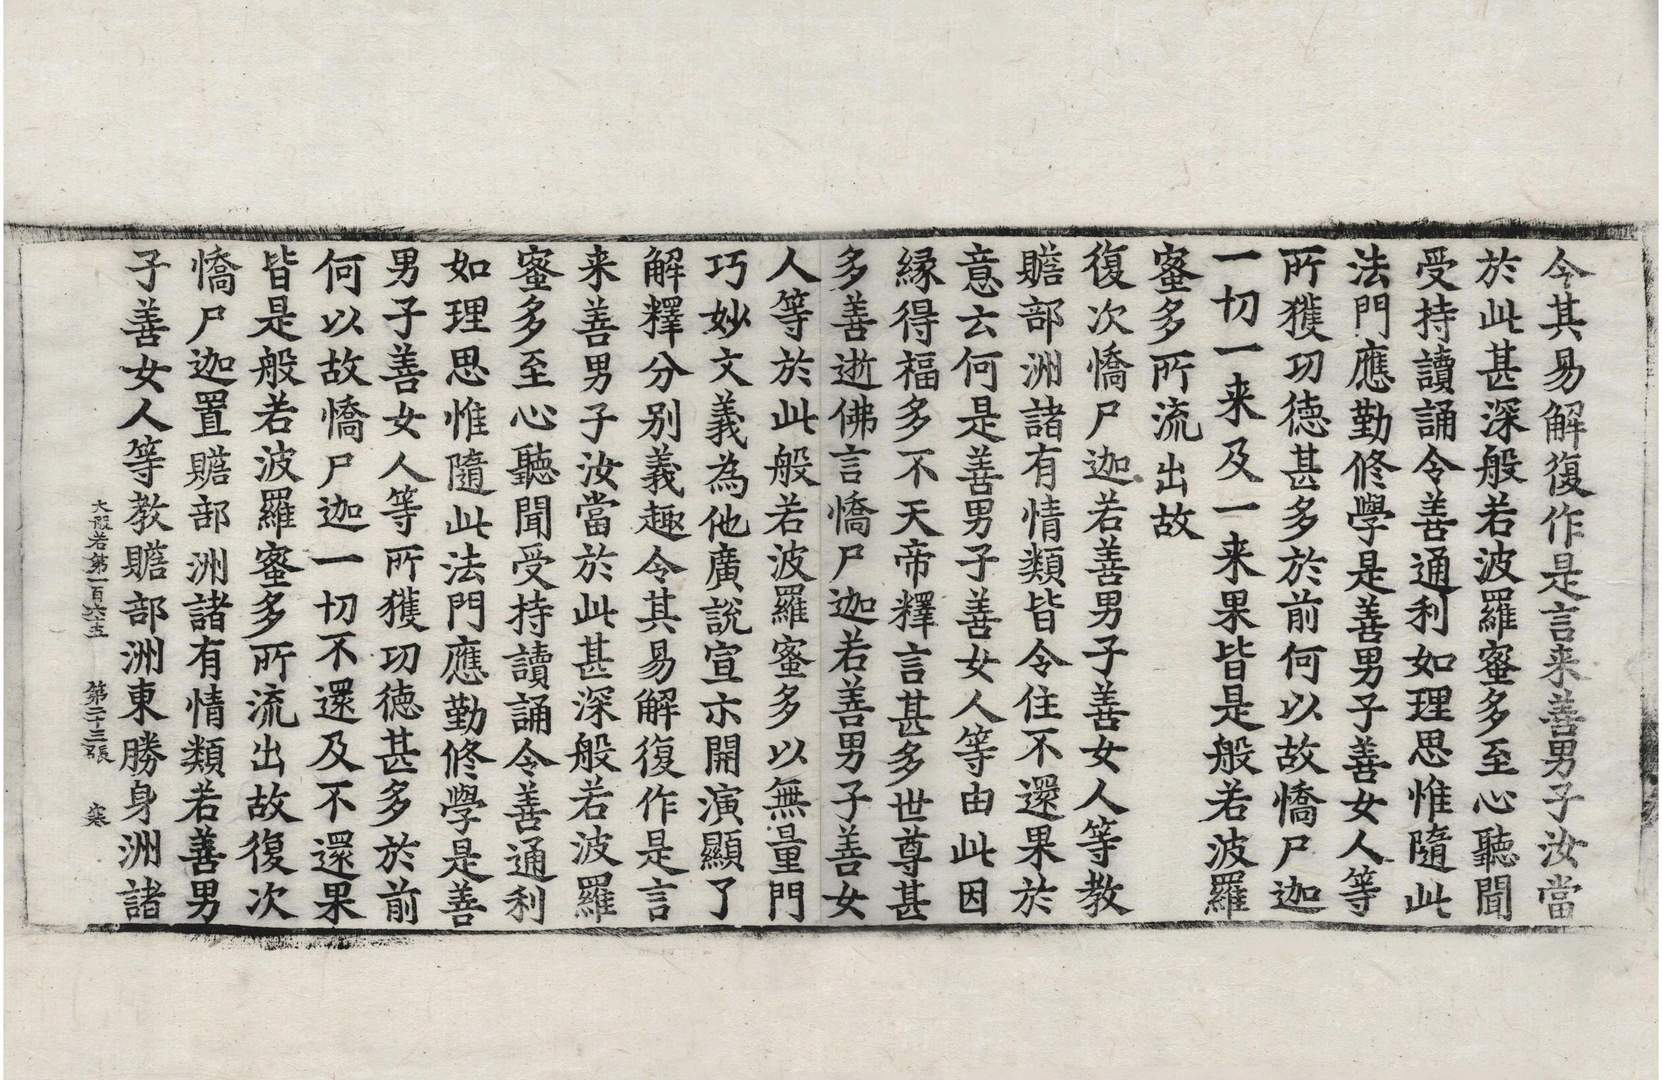 今其易解復作是言来善男子汝當
於此甚深般若波羅蜜多至心聽聞
受持讀誦令善通利如理思惟隨此
法門應勤修學是善男子善女人等
所獲功德甚多於前何以故憍尸迦
一切一来及一来果皆是般若波羅
蜜多所流出故
復次憍尸迦若善男子善女人等教
贍部洲諸有情類皆令住不還果於
意云何是善男子善女人等由此因
緣得福多不天帝釋言甚多世尊甚
多善逝佛言憍尸迦若善男子善女
人等於此般若波羅蜜多以無量門
巧妙文義為他廣說宣示開演顯了
解釋分別義趣令其易解復作是言
来善男子汝當於此甚深般若波羅
蜜多至心聽聞受持讀誦令善通利
如理思惟隨此法門應勤修學是善
男子善女人等所獲功德甚多於前
何以故憍尸迦一切不還及不還果
皆是般若波羅蜜多所流出故復次
憍尸迦置贍部洲諸有情類若善男
子善女人等教贍部洲東勝身洲諸
大般若第一百六十五 第二十三張 寒